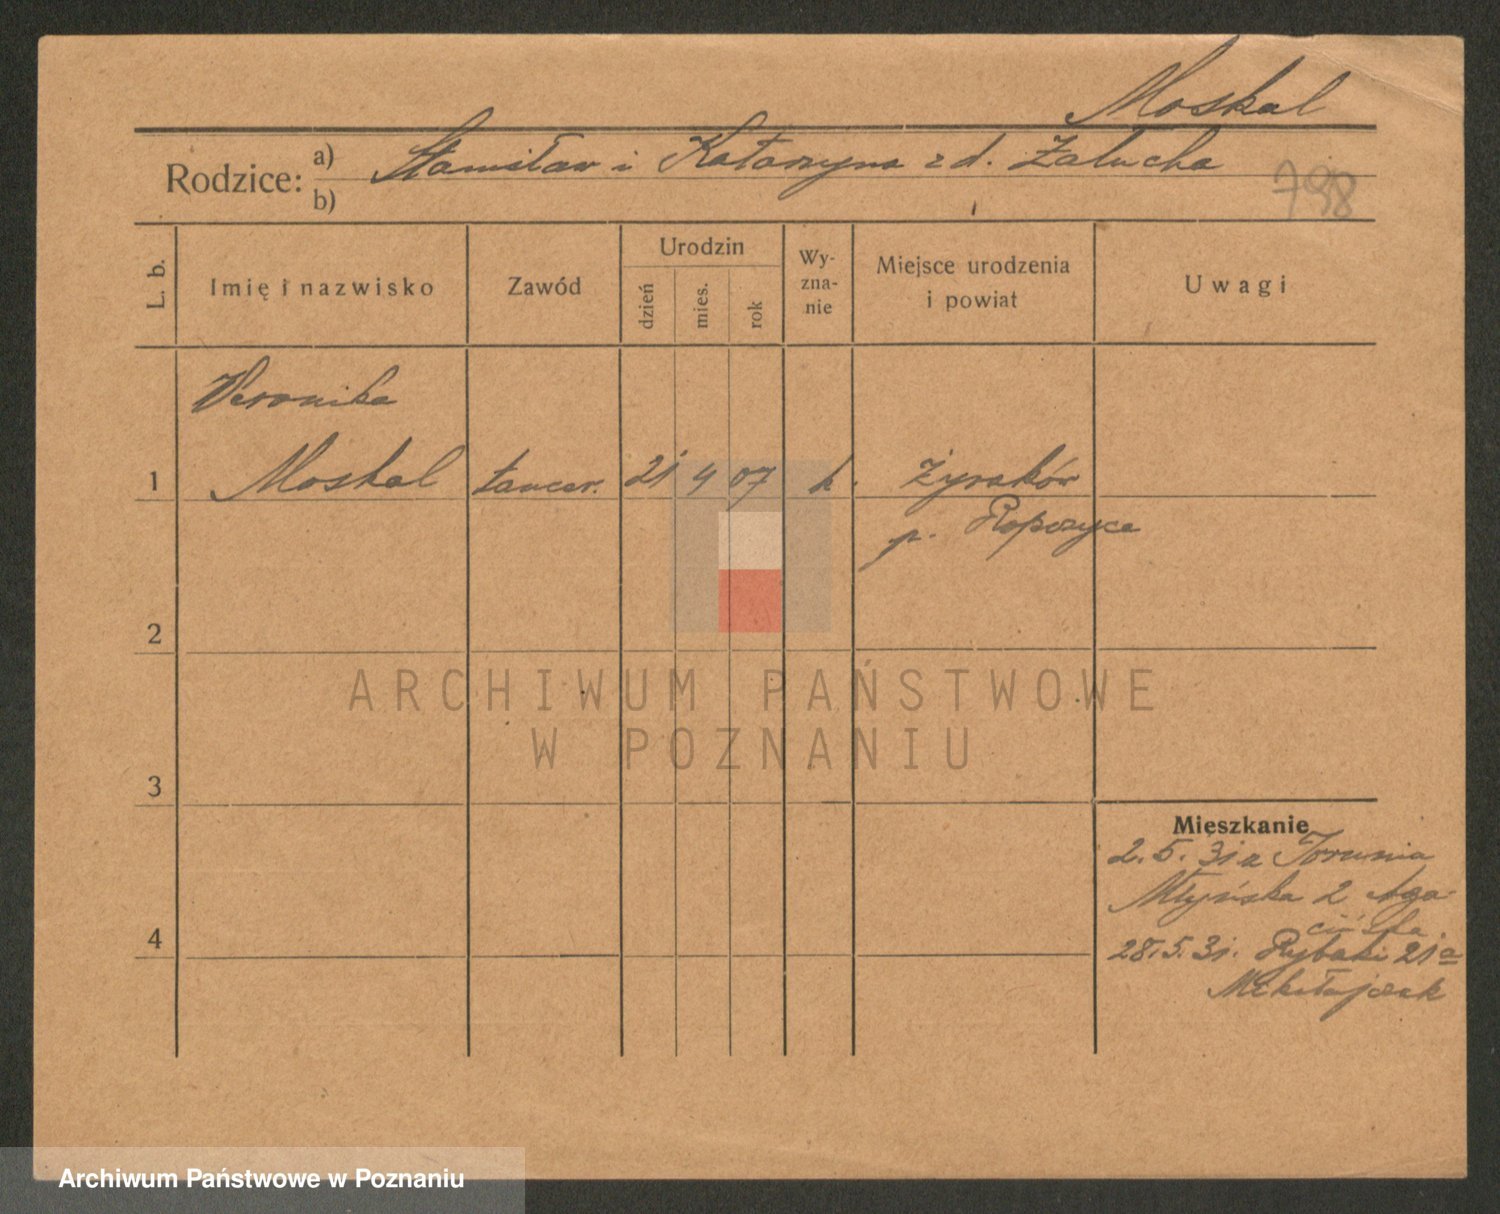 Moskal
Rodzice: a) Stanisław i Katarzyna z d. Załucha
b)
798
L. b.
Imię i nazwisko
Zawód
Urodzin
dzień
mies.
rok
Wy-
zna-
nie
Miejsce urodzenia
i powiat
Uwagi
Weronika
1 Moskal tancer. 21 4 07 k. Żyraków
p. Ropczyce
2
3
4
ARCHIWUM PAŃSTWOWE
W POZNANIU
Mieszkanie
2.5.31 z Torunia
Młyńska 2
28.5.31. Rybaki 21a
Mikołajczak
Archiwum Państwowe w Poznaniu